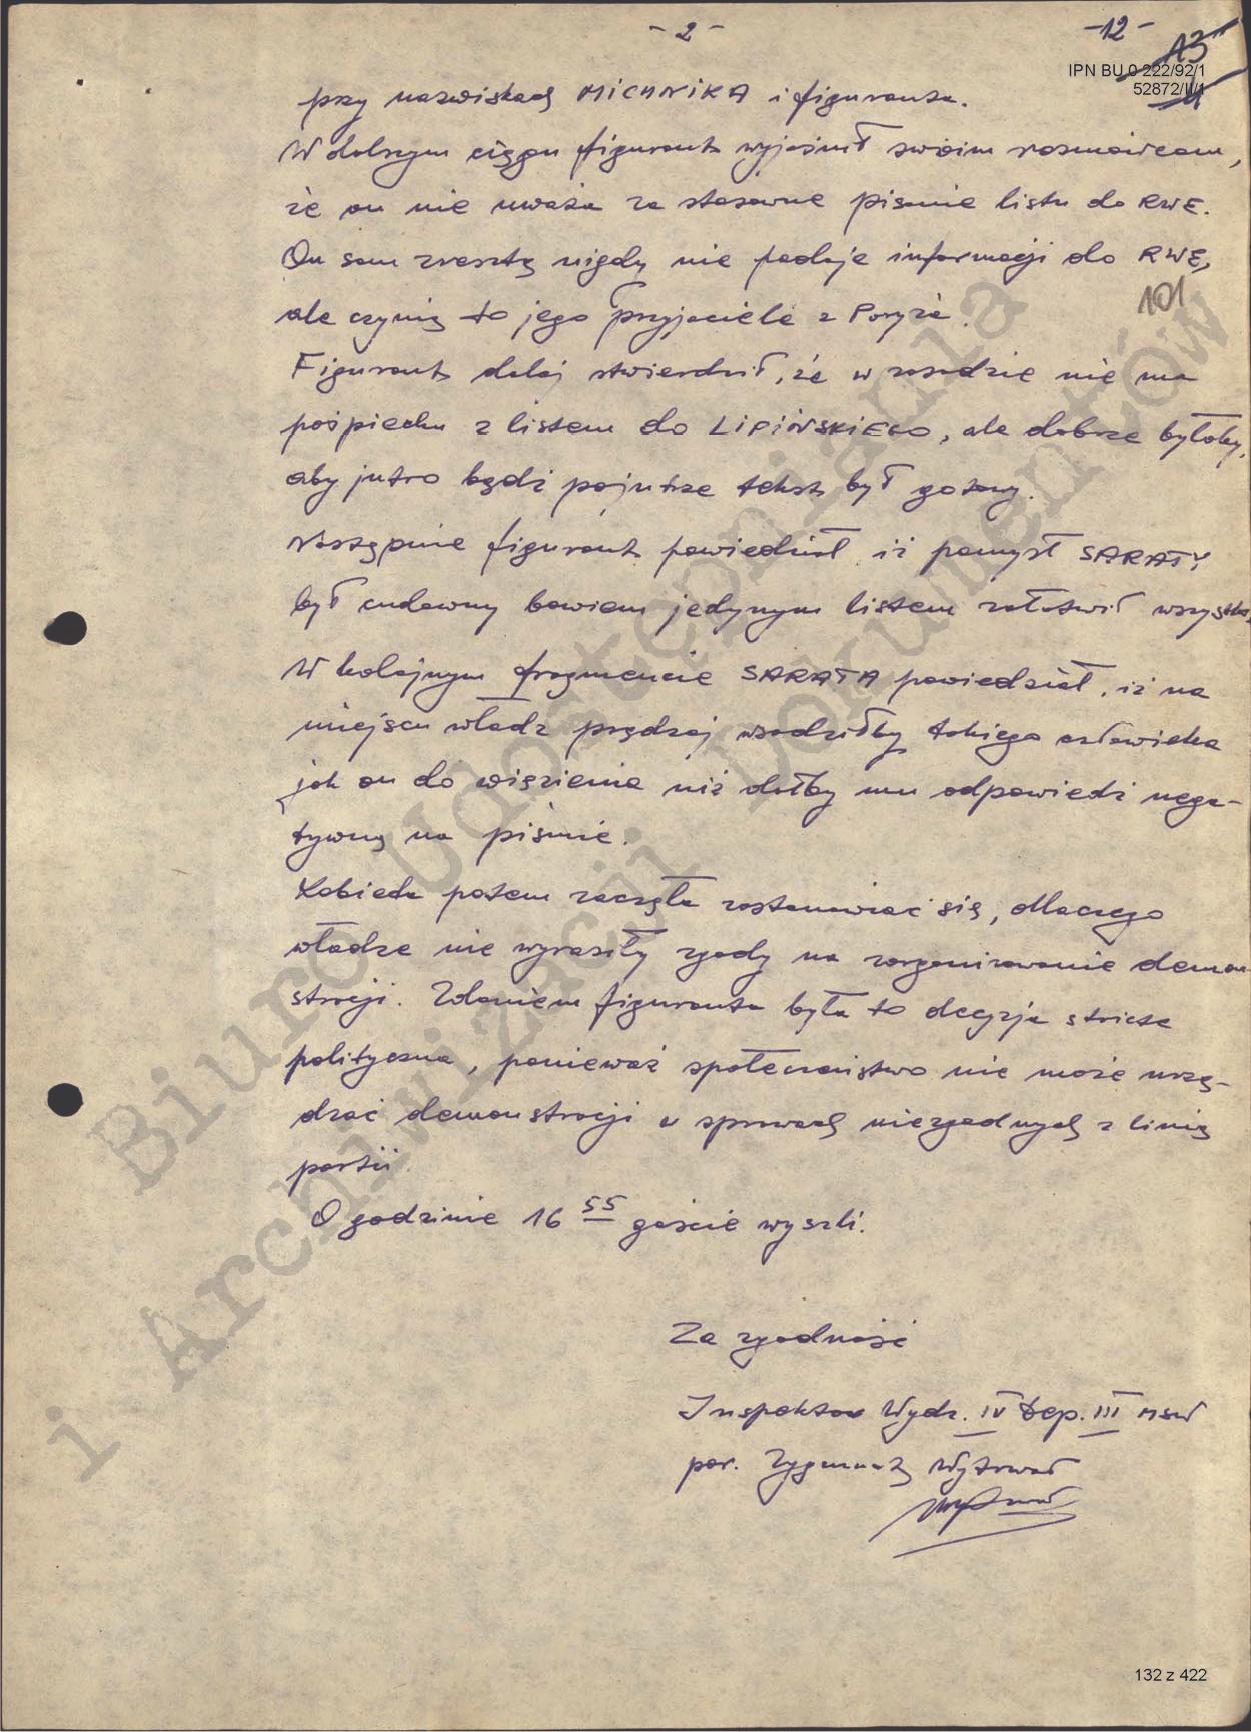 - 2 -
-12-
13
IPN BU 0 222/92/1
52872/II/1
przy nazwiskach MICHNIKA i figuranta.
W dalszym ciągu figurant wyjaśnił swoim rozmówcom,
że on nie uważa za stosowne pisanie listu do RWE.
On sam zresztą nigdy nie podaje informacji do RWE,
101
ale czynią to jego przyjaciele z Paryża.
Figurant dalej stwierdził, że w zasadzie nie ma
pośpiechu z listem do LIPIŃSKIEGO, ale dobrze byłoby,
aby jutro bądź pojutrze tekst był gotowy.
Następnie figurant powiedział, iż pomysł SARATY
był cudowny bowiem jedynym listem załatwił wszystko.
W kolejnym fragmencie SARATA powiedział, iż na
miejscu władz prędzej wsadziłby takiego człowieka
jak on do więzienia niż dałby mu odpowiedź nega-
tywną na piśmie.
Kobieta potem zaczęła zastanawiać się, dlaczego
władze nie wyraziły zgody na zorganizowanie demon
stracji. Zdaniem figuranta była to decyzja stricte
polityczna, ponieważ społeczeństwo nie może urzą-
dzać demonstracji w sprawach niezgodnych z linią
partii.
O godzinie 16 55 goście wyszli.
Za zgodność
Inspektor Wydz. IV Dep. III MSW
por. Zygmunt Wytrwał
Biuro Udostępniania
i Archiwizacji Dokumentów
132 z 422